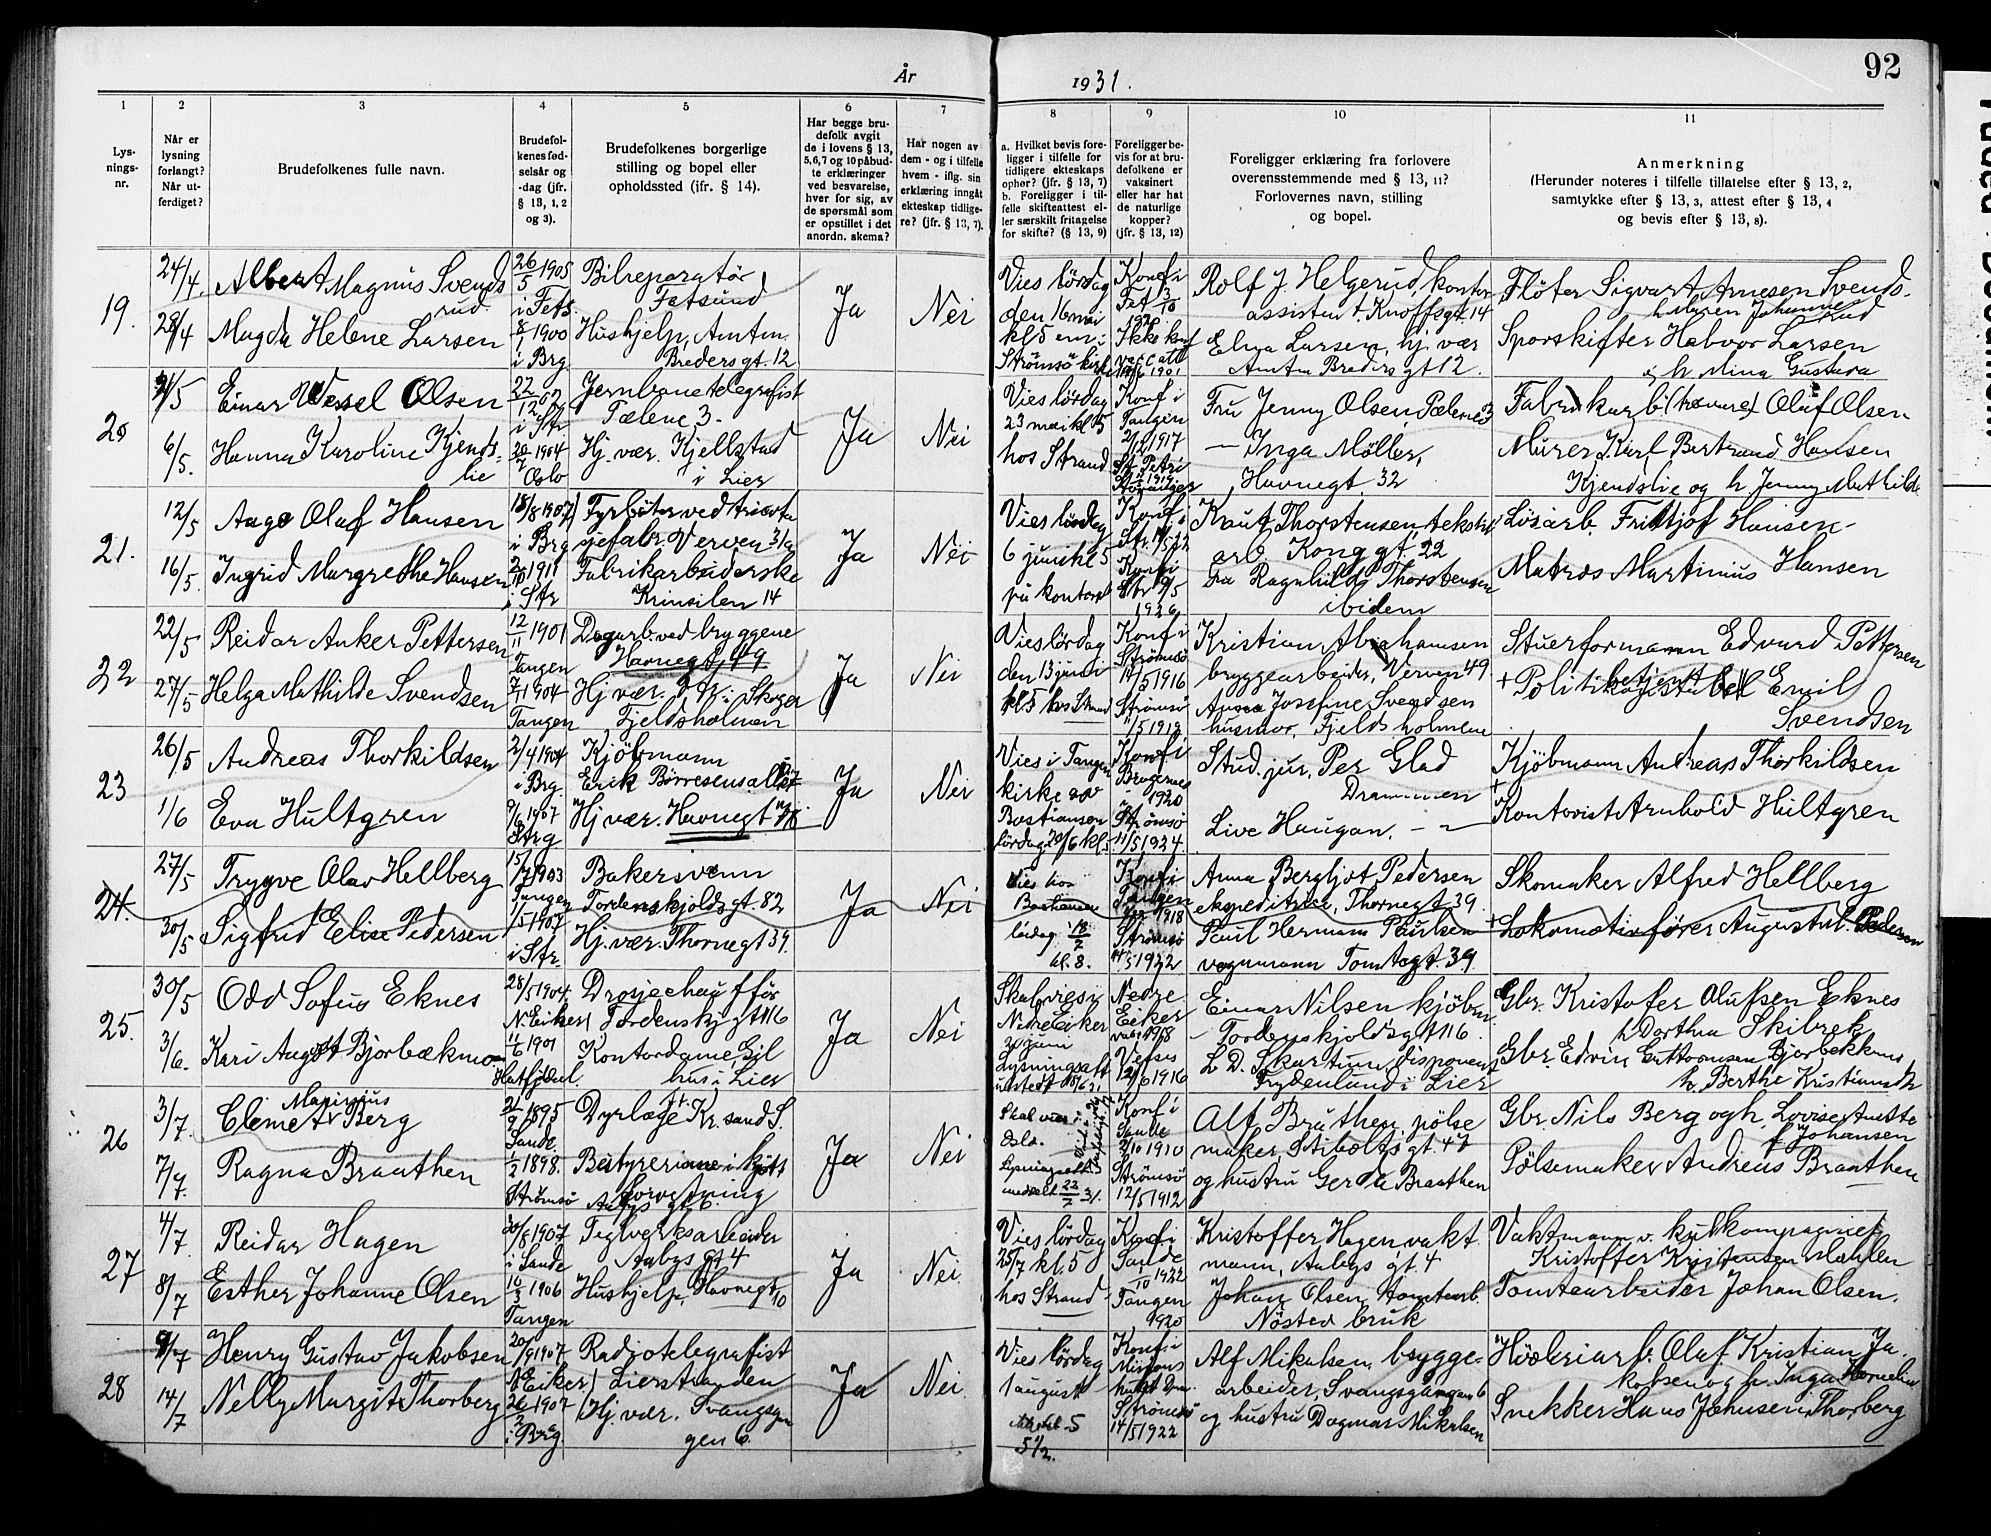 92
År
1931.
1
2
3
4
5
6
7
8
9
10
11
Lys-
nings-
nr.
Når er
lysning
forlangt?
Når ut-
ferdiget?
Brudefolkenes fulle navn.
Brudefol-
kenes fød-
selsår og
-dag (jfr.
§ 13, 1, 2
og 3).
Brudefolkenes borgerlige
stilling og bopel eller
opholdssted (ifr. § 14).
Har begge bru-
defolk avgit
de i lovens § 13,
5,6,7 og 10 påbud-
te erklæringer
ved besvarelse,
hver for sig, av
de spørsmål som
er opstillet i det
anordn. skema?
Har nogen av
dem - og i tilfelle
hvem - iflg. sin
erklæring inngått
ekteskap tidlige-
re? (jfr. § 13, 7).
a. Hvilket bevis fore-
ligger i tilfelle for
tidligere ekteskaps
ophør? (jfr. § 13, 7)
b. Foreligger i til-
felle skifteattest el-
ler særskilt fritagelse
for skifte? (§ 13, 9)
Foreligger be-
vis for at bru-
defolkene er
vaksinert
eller har hat
de naturlige
kopper?
(jfr. § 13, 12)
Foreligger erklæring fra forlovere
overensstemmende med § 13, 11?
Forlovernes navn, stilling
og bopel.
Anmerkning
(Herunder noteres i tilfelle tillatelse efter § 13, 2,
samtykke efter § 13, 3, attest efter § 13, 4
og bevis efter § 13, 8).
19.
24/4.
28/4
Albert Magnus Svends
rud.
Magda Helene Larsen
26/5 1905
i Fets
8/1 1900
i Brg
Bilreparatør
Fetsund
Hushjelp, Amtm.
Bredersgt. 12
Ja
Nei
Vies lørdag
den 16 mai
kl 5 em i
Strømsø kirke
Konf i
Fet 3/10
1920
Ikke konf
vacc att
1901
Rolf J. Helgerud, kontor
assistent, Knoffsgt. 14
Elna Larsen, hj. vær
Amtm Breders gt 12.
Fløter Sigvart Arnesen Svends-
h Maren Johanne rud
Sporskifter Halvor Larsen
og h Mina Gustava
20
4/5
6/5.
Einar Wessel Olsen
Hanna Karoline Kjends-
lie
22/12 02
i Str
20/7 1904
Oslo
Jernbanetelegrafist
Tælene 3.
Hj. vær. Kjellstad
i Lier
Ja
Nei
Vies lørdag
23 mai kl 5
hos Strand
Konf i
Tangen
1917
St Petri
1919
Stavanger
Fru Jenny Olsen, Pælene 3
— Inga Møller,
Havnegt. 32
Fabrikarb (havare) Oluf Olsen
Murer Karl Bertrand Hansen
Kjendslie og h. Jenny Mathilde
21.
12/5
16/5.
Aage Olaf Hansen
Ingrid Margrethe Hansen
18/8 1907
i Brg
1911
i Str
Fyrbøter ved tricota
gefabr. Verven 31a
Fabrikarbeiderske
Krinsilen 14
Ja
Nei
Vies lørdag
6 juni kl 5
på kontoret
Konf i
Str. 14/5 22
Konf i
Str 9/5
1926
Knut Thorstensen, tekstil
arb. Kong gt. 22
Fru Ragnhild Thorstensen
ibidem
Løsarb. Fritjof Hansen -
Matros Martinius Hansen
22
22/5
27/5
Reidar Anker Pettersen
Helga Mathilde Svendsen
12/11 1901
Tangen
7/1 1904
Tangen
Dagarb. ved bryggene
Havnegt, 49
Hj vær. i Skoger
Fjeldsholmen
Ja
Nei
Vies lørdag
den 13 juni
kl 5 hos Strand
Konf i
Strømsø
14/5 1916
Strømsø
11/5 1919
Kristian Abrahamsen
bryggearbeider, Verven 49
Anna Josefine Svendsen
husmor, Fjeldsholmen
Stuerformann Edvard Pettersen
+ Politibetjent Emil
Svendsen
23
26/5
1/6
Andreas Thorkildsen
Eva Hultgren
2/4 1904
i Brg.
9/6 1907
Strg.
Kjøbmann
Erik Børresens alle 7
Hj vær. Havnegt 11
Ja
Nei
Vies i Tangen
kirke av
Bastiansen
lørdag 20/6 kl 5
Konf i
Bragernes
1920
Strømsø
11/5 1924
Stud. jur. Per Glad
Drammen
Live Haugan. — " —
Kjøbmann Andreas Thorkildsen
+
Kontorist Arnhold Hultgren
24.
27/5
30/5
Trygve Olav Hellberg
Sigfrid Elise Pedersen
15/7 1903
Tangen
1/5 1907
i Str.
Bakersvenn
Tordenskjoldsgt. 82
Hj. vær. Thornegt 39.
Ja
Nei
Vies hos
Bastiansen
lørdag 18/7
kl. 8.
Konf i
Tangen
1918
Strømsø
14/5 1922
Anna Bergljot Pedersen
ekspeditrise, Thornegt 39.
Paul Hermann Paulsen
vognmann Tomtegt. 39
Skomaker Alfred Hellberg
+ Lokomotivfører August Pedersen
25.
30/5
3/6.
Odd Sofus Eknes
Kari August Bjørbækmo
28/5 1904.
N. Eiker
11/6 1901
Hatfjeldal.
Drosjechauffør
Tordenskj gt 116
Kontordame, Gil
hus i Lier
Ja
Nei
Skal vies i
Nedre Eiker
20 juni
Lysningsatt
utstedt 18/6 31
Nedre
Eiker
1918
Vefsn
1916
Einar Nilsen kjøbm.
— Tordenskjoldsgt 116.
L D. Skartum disponent
Frydenlund i Lier
Gbr. Kristofer Olufsen Eknes
h Dorthea Skilbrek
Gbr. Edvin Guttormsen Bjørbækkmo,
h. Berthe Kristiansdtr
26
3/7.
7/7.
Clemet Marinius Berg
Ragna Braathen
1895
Sande
1/2 1898.
Strømsø
Dyrlæge Kr. sand S.
Bestyrerinne i kjøtt
forretning
Aabys gt. 6.
Ja
Nei
Skal vies i
Oslo.
Lysningsatt.
meddelt 22/7 31.
Konf i
Sande
2/10 1910
Strømsø
12/5 1912
Alf Braathen, pølse
maker, Stibolts gt. 47
og hustru Gerda Braathen
Gbr. Nils Berg og h. Lovise Anette
f Johansen
Pølsemaker Andreas Braathen
27
4/7
8/7
Reidar Hagen
Esther Johanne Olsen
30/8 1907
i Sande
10/3 1906
Tangen
Teglverksarbeider
Aabys gt. 4
Hushjelp, Havnegt 10
Ja
Nei.
Vies lørdag
25/7 kl. 5
hos Strand
Konf i
Sande
1/10 1922
Tangen
1920
Kristoffer Hagen, vakt
mann, Aabys gt. 4
Johan Olsen, tomtearb.
Nøsted bruk
Vaktmann v. kullkompagniet
Kristoffer Kristensen Mæhlen
Tomtearbeider Johan Olsen.
28
9/7
14/7
Henry Gustav Jakobsen
Nelly Margit Thorberg
20/9 1907
N Eiker
26/2 1907
i Brg
Radiotelegrafist
Lierstranden
Hj. vær. Svangsgan
gen 6.
Ja
Nei.
Vies lørdag
1 august
5 1/2.
Konf i
Misjons
huset Dra.
Strømsø
14/5 1922
Alf Mikalsen, brygge-
arbeider, Svangsgangen 6
og hustru Dagmar Mikalsen
Høvleriarb. Olaf Kristian Ja-
kobsen og h. Inga Kornelia
Snekker Hans Johnsen Thorberg